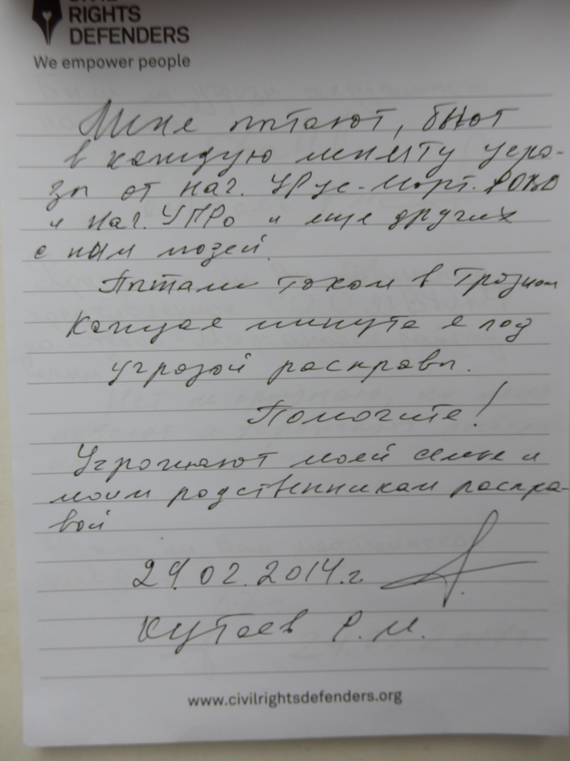 CIVIL
RIGHTS
DEFENDERS
We empower people
Меня пытают, бьют
в каждую минуту угро-
зы от нач. Урус-Март. РОВД
и нач. УПРо и еще других
с ним людей.
Пытали током в Грозном
Каждая минута я под
угрозой расправы.
Помогите!
Угрожают моей семье и
моим родственникам распра-
вой
24.02.2014г.
Кутаев Р.М.
www.civilrightsdefenders.org